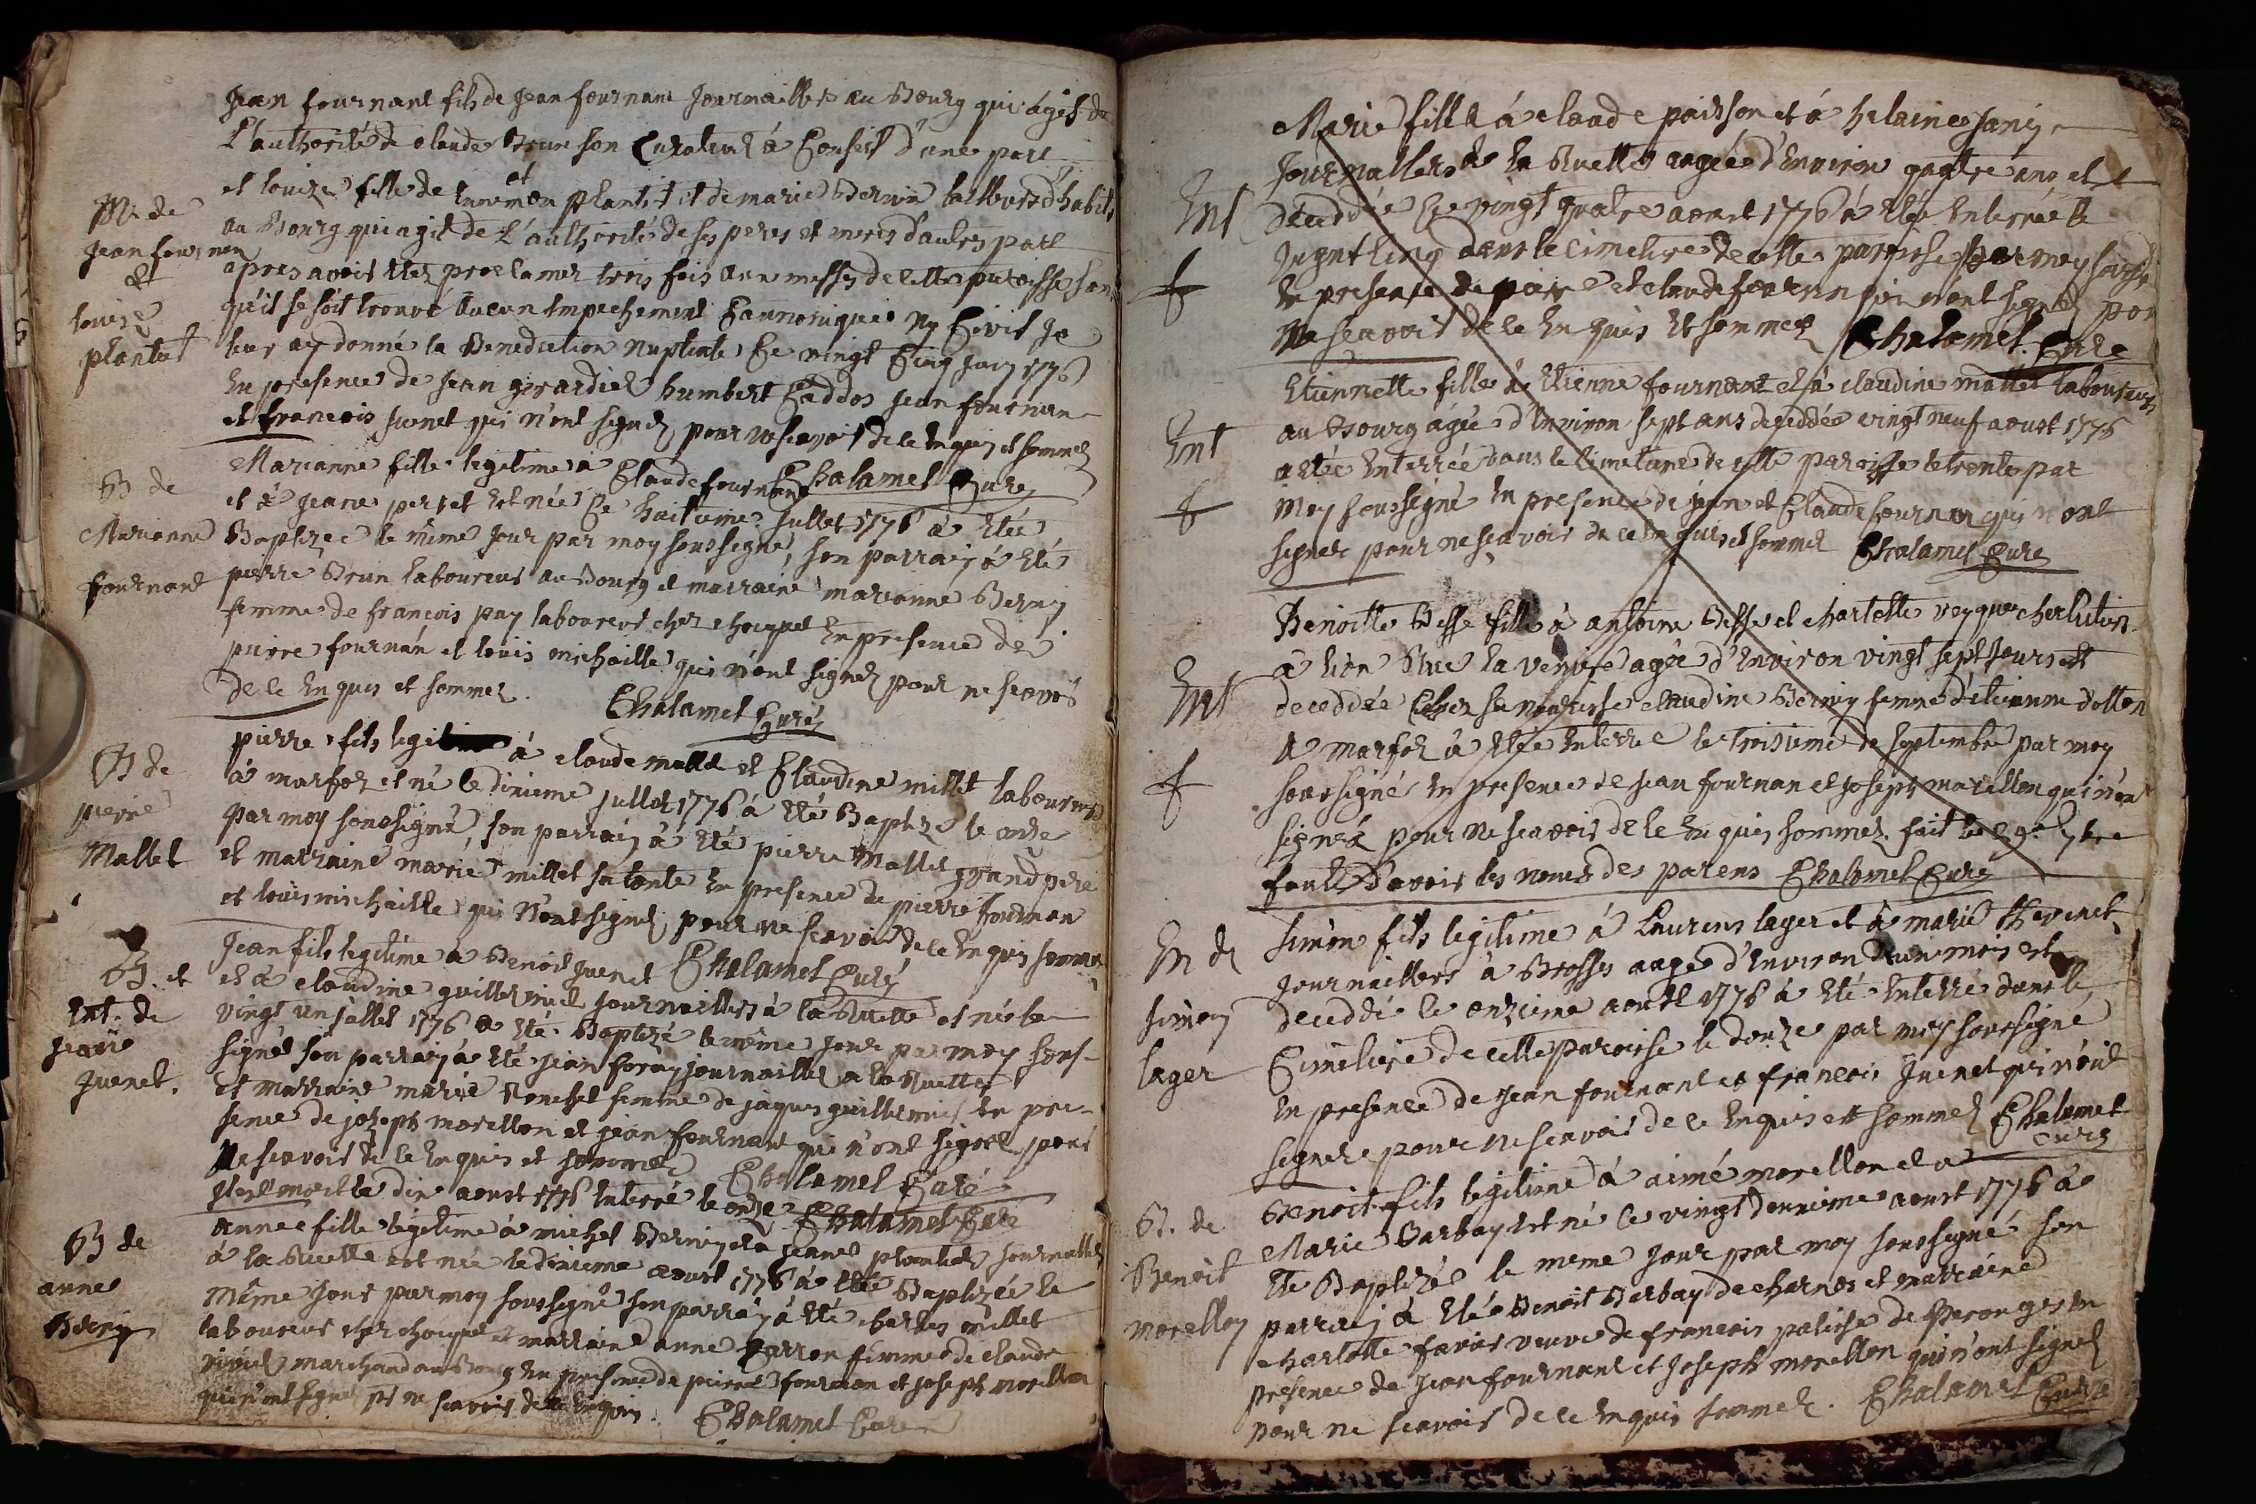 Jean fournant fils de Jean fournant Journaillier au Bourg qui agit de
L'authorité de claude Brun son Curateur à Conseil d'une part
et
et Louize fille de plantet et de marie Bernin tailleurs d'habits
M. de
Jean fournan
&
Louise
plantet
au Bourg qui agit de L'authorité de ses peres et meres d'autres part
apres avoir Etez proclamez trois fois aux messes de cette paroisse sans
qu'il se soit trouvé aucun Empechement Cannonique Ny Civil Je
leur ay donné la Benediction Nuptiale Ce vingt Cinq Juin 1776
En presence de Jean girardier humbert Caddos Jean fournan
et francois Juenet qui n'ont signez pour ne scavoir de ce Enquis et sommez
Chalamel Curé
B de
Marianne
fournant
Marianne fille legitime à Claude fournant
et à Jeane perret est née le huitieme Juillet 1776 à Eté
Baptizée le même Jour par moy soussigné, son parrain à Eté
pierre Brun laboureur au Bourg et marraine marianne Berny
femme de françois pay laboureur chez choupet En presence de
pierre fournan et louis michaille qui n'ont signez pour ne scavoir
de ce Enquis et sommez. Chalamel Curé
B de
pierre
Mallet
pierre fils legitime à claude mallet et Claudine millet laboureurs
à marfoz et né le dixieme Juillet 1776 à Eté Baptizé le onze
par moy soussigné, son parrain à Eté pierre Mallet grand pere
et marraine marie millet sa tante En presence de pierre fournan
et louis michaille qui n'ont signez pour ne scavoir de ce Enquis sommez
Chalamel Curé
B. et
Ent. de
Jean
Juenet.
Jean fils legitime à Benoit Juenet
et à claudine guillermin Journailliers à la Ruette et né le
vingt un juillet 1776 à Eté Baptizé le même Jour par moy sous-
signé son parrain à Eté Jean foray journaillier à la Ruette
et marraine marie femme de jaques guillermin En pre-
sence de joseph morellon et jean fournant qui n'ont signez pour
Ne scavoir de ce Enquis et sommez Chalamel Curé
Il est mort le dix aoust 1776 Enterré le onze Chalamel Curé
B de
anne
Berny
anne fille legitime à michel Berny et à Jeanne plantet Journalliers
à la Ruette est née le dixieme aoust 1776 à Eté Baptizée le
même Jour par moy soussigné son parrain à Eté charles millet
laboureur chez choupet et marraine anne Carron femme de claude
marchand au Bourg En presence de pierre fournan et joseph morellon
qui n'ont signez pr ne scavoir de ce Enquis. Chalamel Curé
Ent
Marie fille à claude poisson et à helaine Janin
Journalliers à la Ruette agée d'Environ quatre ans est
décédée Ce vingt quatre aoust 1776 à Etée Enterrée le
vignt Cinq dans le cimetiere de cette paroisse par moy soussigné
En presence de pierre et claude fournan qui n'ont signez pour
Ne scavoir de ce Enquis Et sommez Chalamel Curé
Ent
Etiennette fille à Etienne fournant et à claudine mallet laboureurs
au Bourg agée d'Environ sept ans deceddée vingt neuf aoust 1776
a Etée Enterrée dans le Cimetiere de cette paroisse le trente par
Moy soussigné En presence de jean et Claude fournan qui n'ont
signez pour ne scavoir de ce Enquis et sommez Chalamel Curé
Ent
Benoitte Besse fille à antoine Besse et charlotte
à Lion Rue la agée d'Environ vingt sept Jours est
deceddée Chez sa nourisse claudine Berny femme d'etienne dollon
à Marfoz à Etée Enterrée le troisieme de septembre par moy
soussigné En presence de Jean fournan et Joseph morellon qui n'ont
signez pour Ne scavoir de ce Enquis sommez. fait le 29e
faute d'avoir les noms des parens Chalamel Curé
En de
Simon
lager
Simon fils legitime à Laurens lager et à marie thevenet
Journailliers à Brosses aagé d'Environ d'un mois est
deceddé le onzieme aoust 1776 à Eté Enterré dans le
Cimetiere de cette paroisse le douze par moy soussigné
En presence de Jean fournant et francois Juenet qui n'ont
signez pour ne scavoir de ce Enquis et sommez Chalamel
curé
B. de
Benoit
morellon
Benoit fils legitime à aimé morellon et à
Marie Barbay est né le vingt deuxieme aoust 1776 à
Eté Baptizé le meme Jour par moy soussigné son
parrain à Eté Benoit Barbay de charnos et marraine
charlotte favier veuve de francois palisse de Perouges En
presence de Jean fournant et Joseph morellon qui n'ont signez
pour ne scavoir de ce Enquis sommez. Chalamel Curé